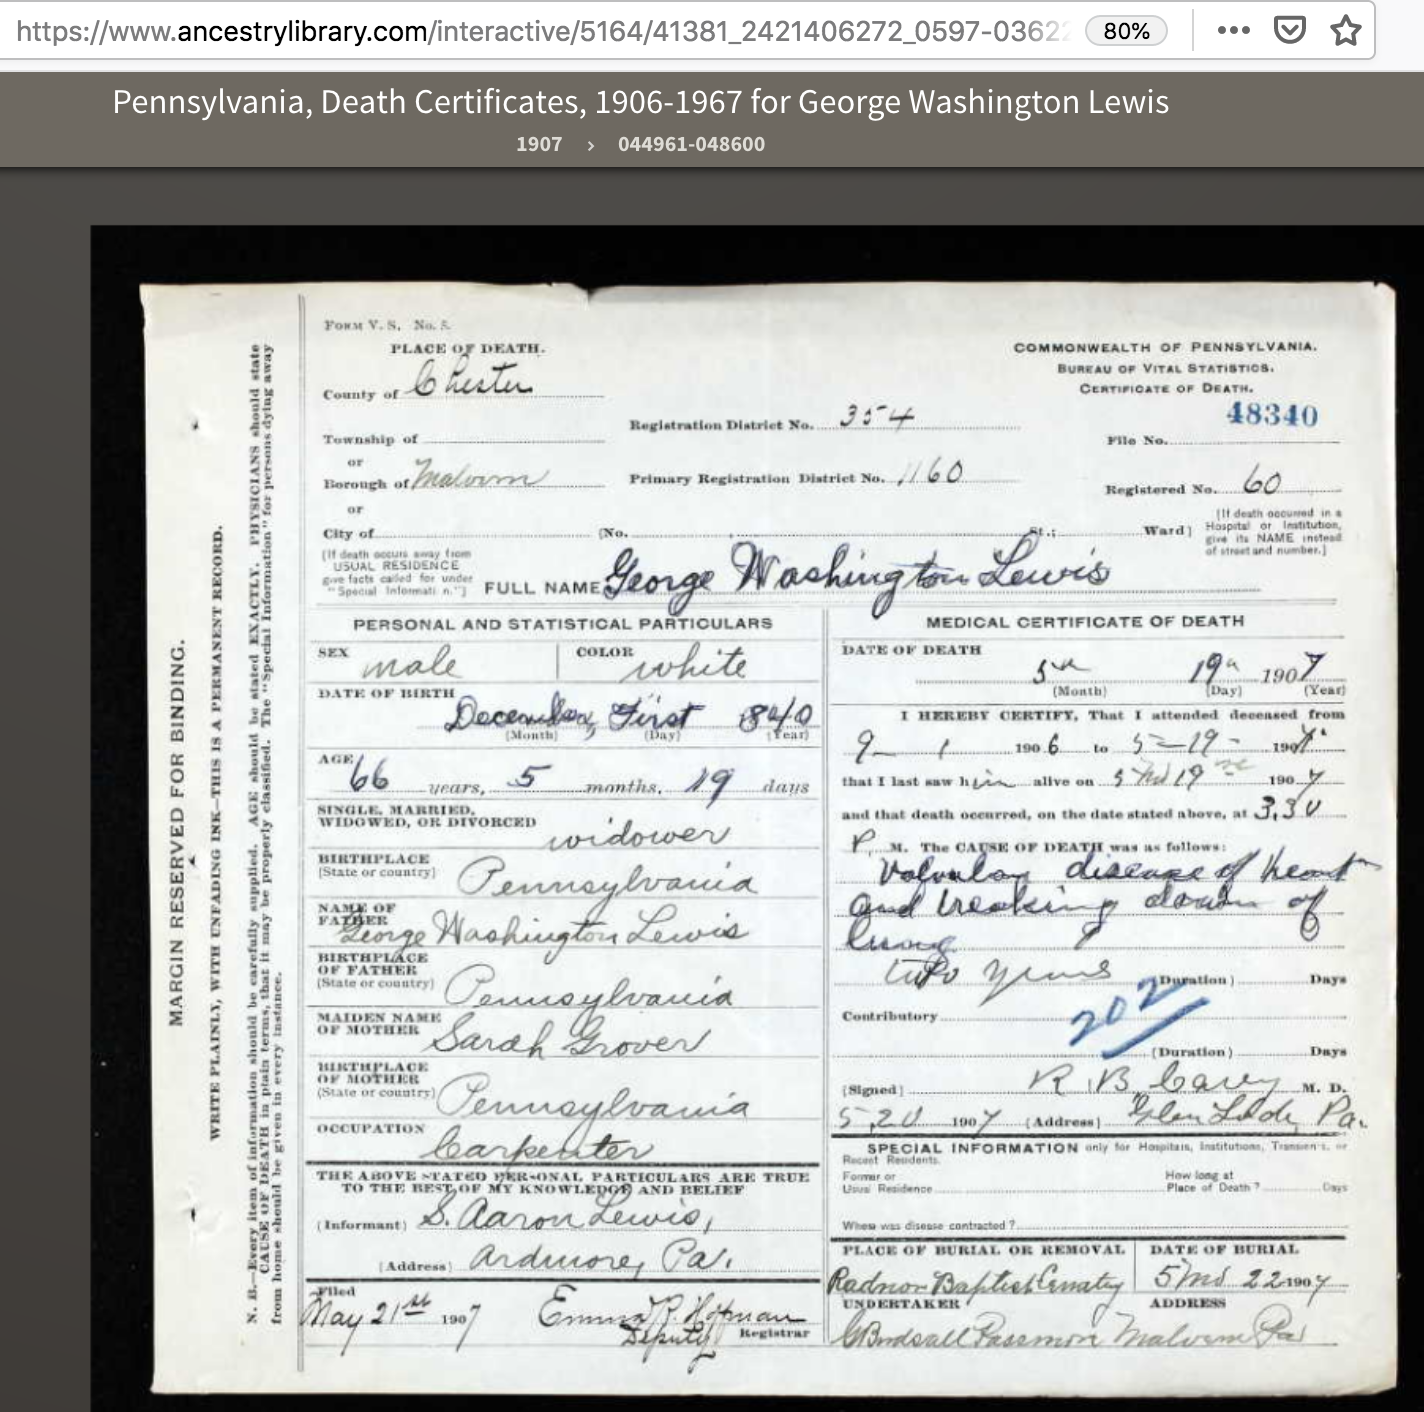 https://www.ancestrylibrary.com/interactive/5164/41381_2421406272_0597-0362
80%
Pennsylvania, Death Certificates, 1906-1967 for George Washington Lewis
1907 › 044961-048600
FORM V. S. No. 5.
PLACE OF DEATH.
County of Chester
Township of
or
Borough of Malvern
or
City of
(No. , St.; Ward)
Registration District No. 354
Primary Registration District No. 1160
COMMONWEALTH OF PENNSYLVANIA.
BUREAU OF VITAL STATISTICS.
CERTIFICATE OF DEATH.
48340
File No.
Registered No. 60
[If death occurred in a
Hospital or Institution,
give its NAME instead
of street and number.]
[If death occurs away from
USUAL RESIDENCE
give facts called for under
"Special Informati n."]
FULL NAME George Washington Lewis
MARGIN RESERVED FOR BINDING.
WRITE PLAINLY, WITH UNFADING INK—THIS IS A PERMANENT RECORD.
N. B.—Every item of information should be carefully supplied. AGE should be stated EXACTLY. PHYSICIANS should state
CAUSE OF DEATH in plain terms, that it may be properly classified. The "Special Information" for persons dying away
from home should be given in every instance.
PERSONAL AND STATISTICAL PARTICULARS
SEX male
COLOR white
DATE OF BIRTH
December, First 1840
(Month) (Day) (Year)
AGE
66 years, 5 months, 19 days
SINGLE, MARRIED,
WIDOWED, OR DIVORCED
widower
BIRTHPLACE
(State or country) Pennsylvania
NAME OF
FATHER
George Washington Lewis
BIRTHPLACE
OF FATHER
(State or country) Pennsylvania
MAIDEN NAME
OF MOTHER Sarah Grover
BIRTHPLACE
OF MOTHER
(State or country) Pennsylvania
OCCUPATION
Carpenter
THE ABOVE STATED PERSONAL PARTICULARS ARE TRUE
TO THE BEST OF MY KNOWLEDGE AND BELIEF
(Informant) S. Aaron Lewis,
(Address) Ardmore, Pa.
Filed
May 21st 1907 Emma R. Hofman
Deputy Registrar
MEDICAL CERTIFICATE OF DEATH
DATE OF DEATH
5th 19th 1907
(Month) (Day) (Year)
I HEREBY CERTIFY, That I attended deceased from
9 1 1906 to 5-19- 1907
that I last saw him alive on 5 Mo 19 1907
and that death occurred, on the date stated above, at 3,30
P. M. The CAUSE OF DEATH was as follows:
Valvular disease of heart
and breaking down of
lung
two years (Duration) Days
202
Contributory
(Duration) Days
(Signed) R. B. Carey M. D.
5,20 1907 (Address) Glen Pa.
SPECIAL INFORMATION only for Hospitals, Institutions, Transients, or
Recent Residents.
Former or
Usual Residence
How long at
Place of Death? Days
When was disease contracted?
PLACE OF BURIAL OR REMOVAL
Radnor Baptist Cemetery
DATE OF BURIAL
5 Mo 22 1907
UNDERTAKER
ADDRESS
Passmore Malvern Pa